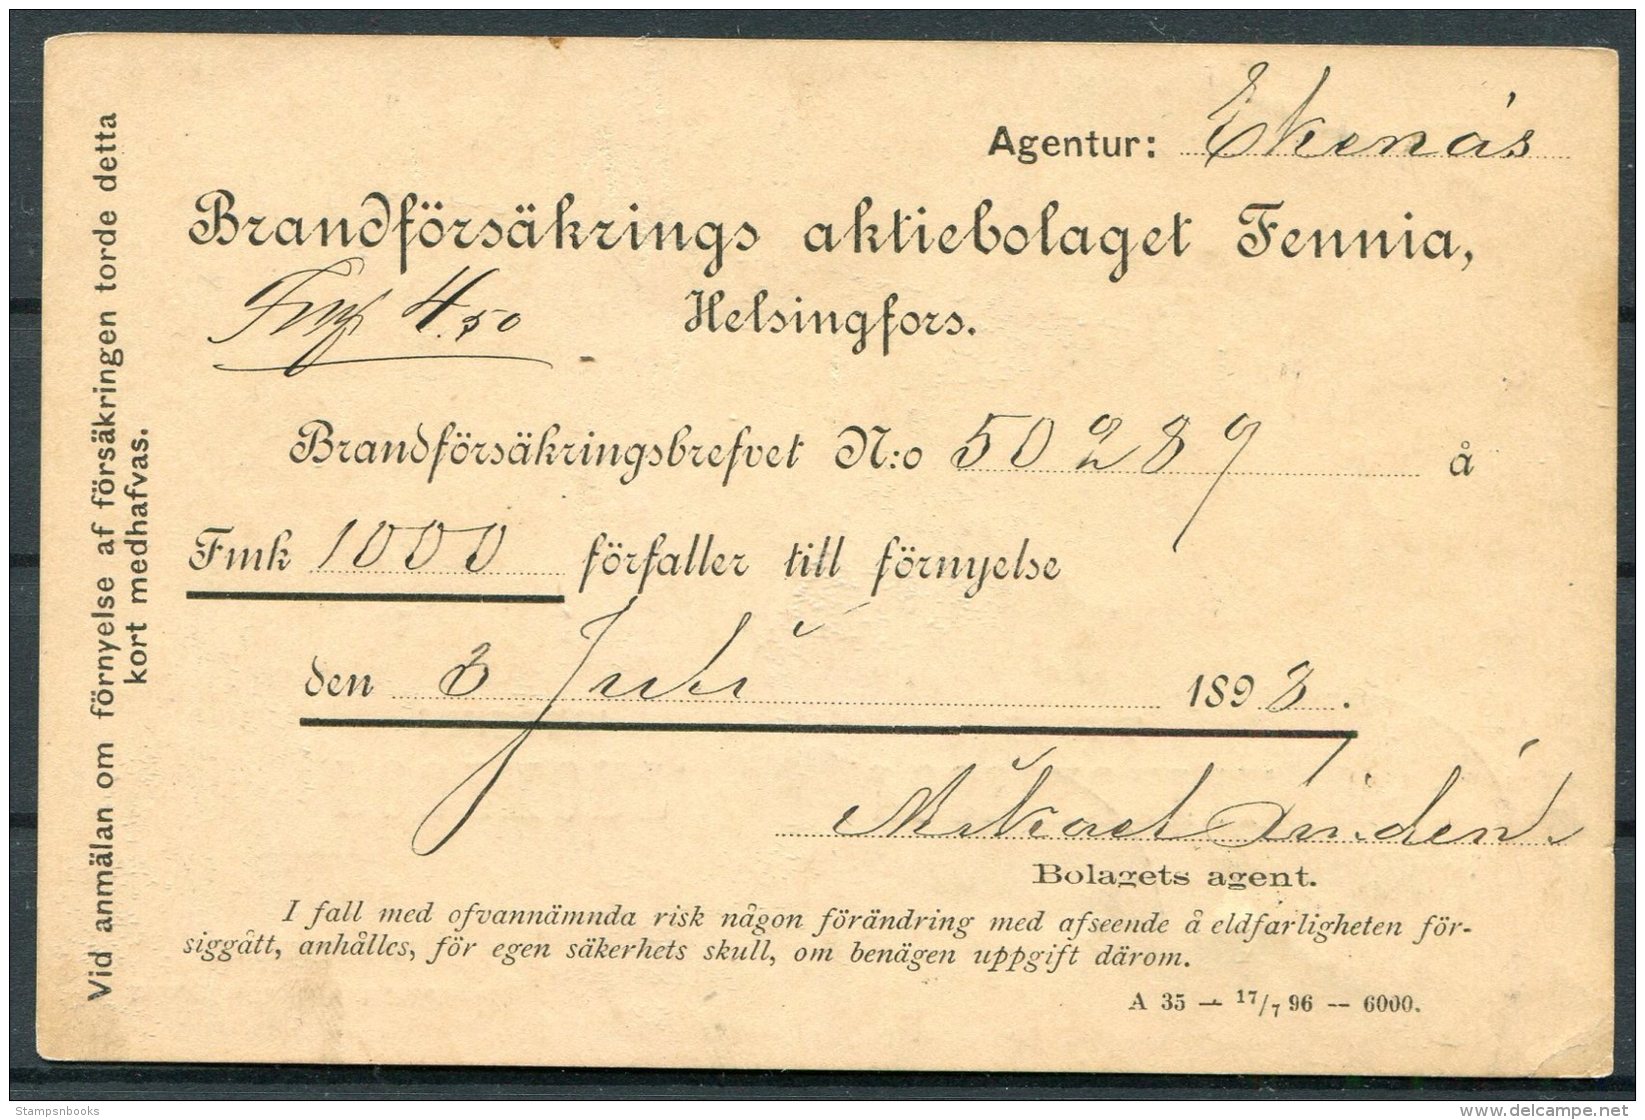 Agentur: Ekenäs
Brandförsäkrings aktiebolaget Fennia,
Fmk 4.50 Helsingfors.
Brandförsäkringsbrefvet N:o 50289 å
Fmk 1000 förfaller till förnyelse
den 3 Juli 1898.
Mikael Lindén.
Bolagets agent.
I fall med ofvannämnda risk någon förändring med afseende å eldfarligheten för-
siggått, anhålles, för egen säkerhets skull, om benägen uppgift därom.
A 35 — 17/7 96 — 6000.
Vid anmälan om förnyelse af försäkringen torde detta
kort medhafvas.
Stampsnbooks
delcampe.net